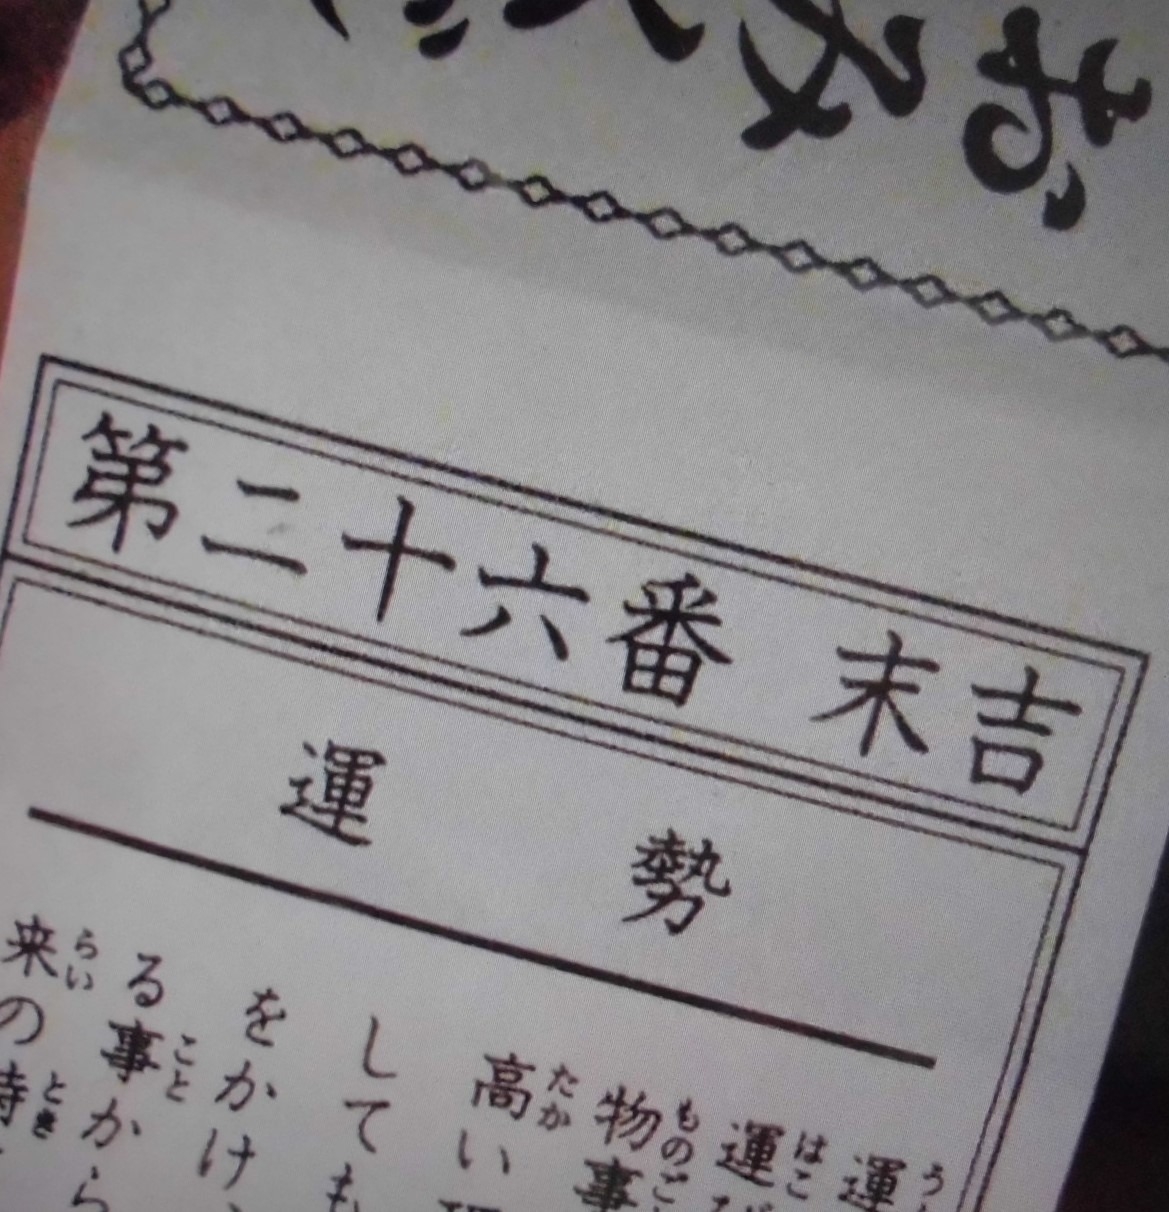 おみくじ
第二十六番 末吉
運勢
運
運
物事
高い
しても
をかけ
る事から
来の時